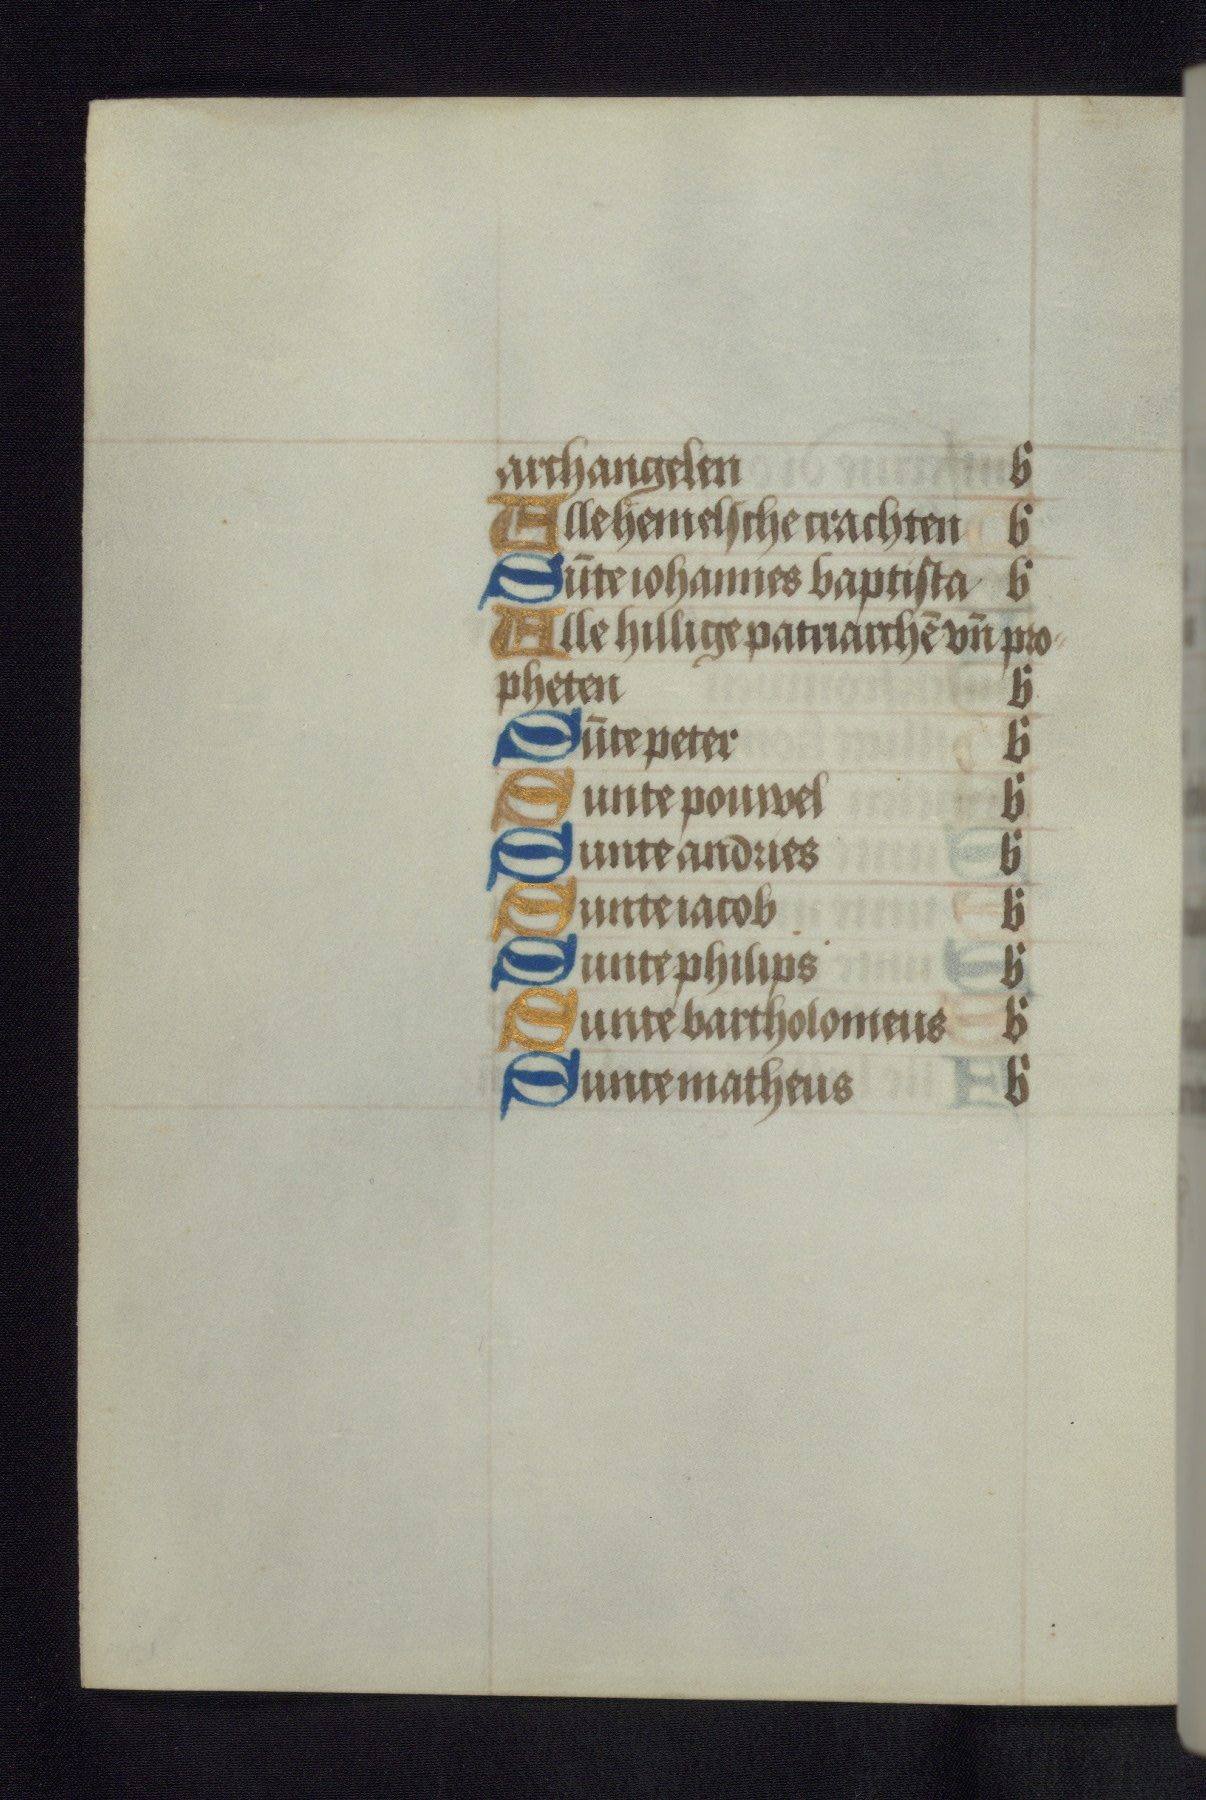 archangelen b
Alle hemelsche crachten b
Sūte iohannes baptista b
Alle hillige patriarchē vn̄ pro-
pheten b
Sūte peter b
Sunte pouwel b
Sunte andries b
Sunte iacob b
Sunte philips b
Sunte bartholomeus b
Sunte matheus b